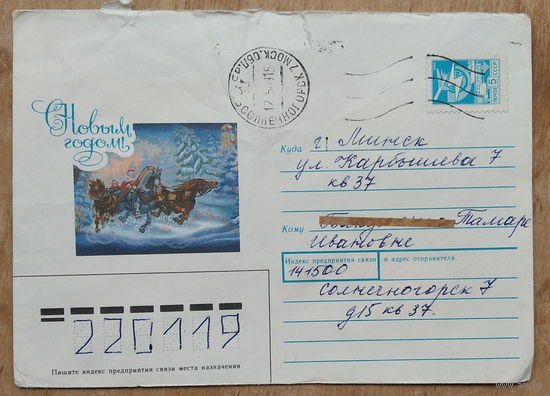 С Новым
годом!
СОЛНЕЧНОГОРСК 7 МОСК.ОБЛ.
ПОЧТА СССР 5
Куда г. Минск
ул. Карбышева 7
кв 37
Кому Тамаре
Ивановне
Индекс предприятия связи и адрес отправителя
141500
Солнечногорск 7
д15 кв 37.
220119
Пишите индекс предприятия связи места назначения